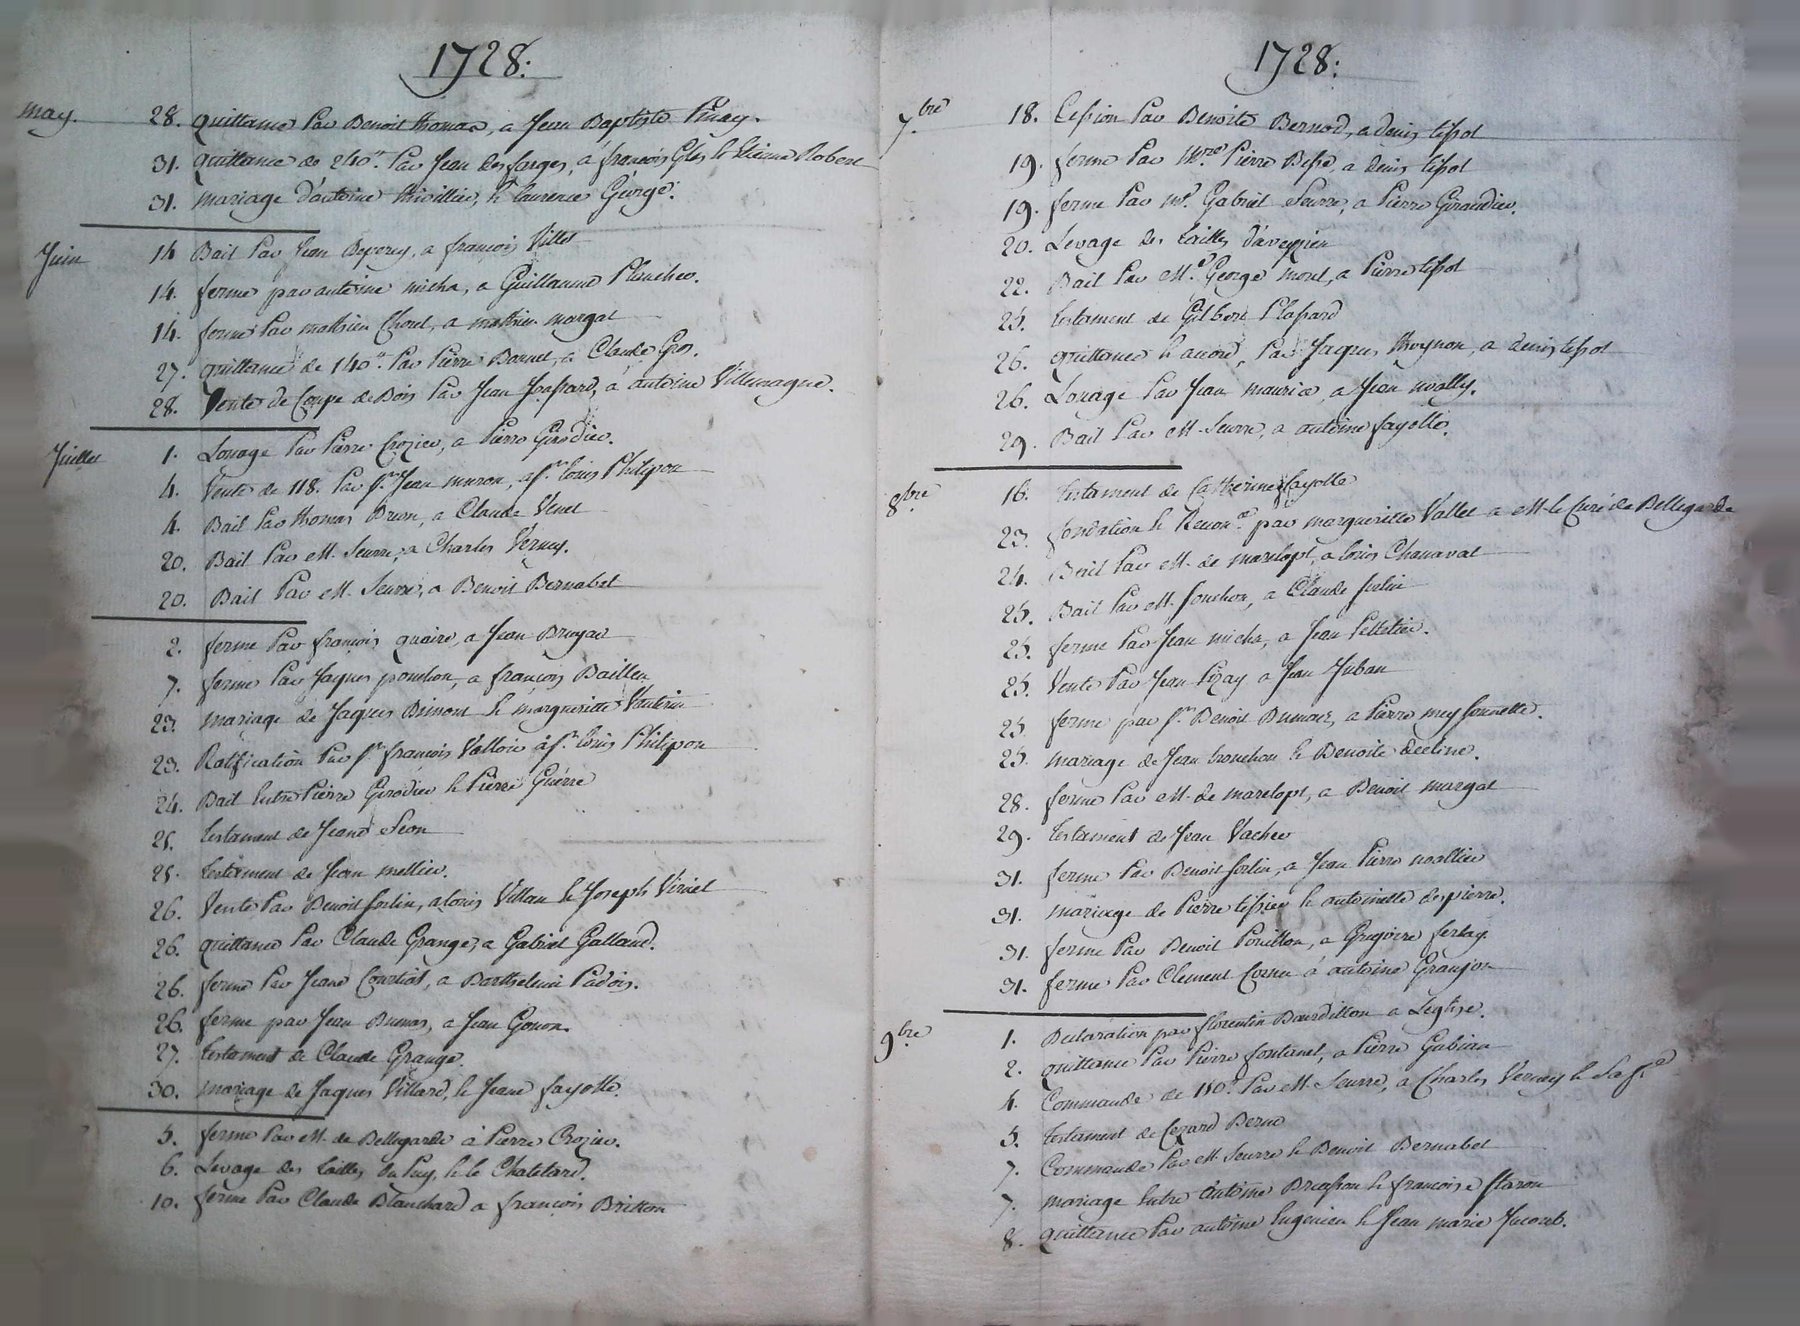 1728.
may. 28. quittance Par Benoit thomas, a Jean Baptiste Pinay.
31. quittance de 240# Par Jean desfarges, a françois Gles & Etienne Robert
31. mariage d'antoine thivillier, & laurence George.
Juin 14 Bail Par Jean Beperey, a françois Villet
14. ferme par antoine micha, a Guillaume Plancher.
14. ferme Par mathieu Chorel, a mathieu margat
27. quittance de 140# Par Pierre Bonnet, a Claude Gros.
28. Vente de Coupe de Bois Par Jean Joassard, a antoine Villemagne.
Juillet 1. Louage Par Pierre Crozier, a Pierre Girodier.
4. Vente de 118. Par Sr. Jean muron, a Sr. louis Philipon
4. Bail Par thomas Brun, a Claude Venet
20. Bail Par M. Seurre, a Charles Verney.
20. Bail Par M. Seurre, a Benoit Bernabet
2. ferme Par françois quaire, a Jean Bruyas
7. ferme Par Jaques ponchon, a françois Bailleu
23. mariage de Jaques Brinont & margueritte Vauterin
23. Ratification Par Sr françois Valloir à Sr. louis Philipon
24. Bail Entre Pierre Girodier & Pierre Guerre
25. testament de Jeane Seon
25. testament de Jean mellier.
26. Vente Par Benoit forlin, a louis Villan & Joseph Viriel
26. quittance Par Claude Grange, a Gabriel Galland.
26. ferme Par Jeane Courtial, a Barthelemi Padois.
26. ferme par Jean Dumas, a Jean Gonon.
27. testament de Claude Grange.
30. mariage de Jaques Villard, & Jeane fayolle.
5. ferme Par M. de Bellegarde à Pierre Crozier.
6. Levage des tailles du Puy, & le Chatelard.
10. ferme Par Claude Blanchard a françois Britton
1728.
7.bre 18. Cession Par Benoite Bernod, a denis tissot
19. ferme Par Mre. Pierre Besse, a denis tissot
19. ferme Par Mr. Gabriel Seurre, a Pierre Giraudier.
20. Levage des tailles d'aveyzieu
22. Bail Par Mr George mont, a Pierre tissot
25. testament de Gilbert Plassard
26. quittance & accord, Par Jaques thoynon, a denis tissot
26. Louage Par Jean maurice, a Jean nvally.
29. Bail Par M. Seurre, a antoine fayolle.
8.bre 16. testament de Catherine fayolle
23. fondation & Renon.on par margueritte Vallet a M. le Curé de Bellegarde
24. Bail Par M. de marelopt, a loüis Chanavat
25. Bail Par M. fonchon, a Claude forlin
25. ferme Par Jean micha, a Jean Pelletier.
25. Vente Par Jean Pizay a Jean Juban
25. ferme par Sr Benoit Dumas, a Pierre meyssonnette.
25. mariage de Jean tronchon & Benoite decline.
28. ferme Par M. de marelopt, a Benoit margat
29. testament de Jean Vacher
31. ferme Par Benoit forlin, a Jean Pierre nvallier
31. mariage de Pierre tissier & antoinette depierre.
31. ferme Par Benoit Pouillon, a Gregoire ferlay.
31. ferme Par Clement Cornu a antoine Granjon
9.bre 1. Declaration par florentin Bourdillon a Leglise.
2. quittance Par Pierre fontanel, a Pierre Gubian
4. Commande de 110# Par M. Seurre, a Charles Verney & Sa fe
5. testament de Cezard Berne
7. Commande Par M. Seurre & Benoit Bernabet
7. mariage Entre antoine Bruasson & françoise staron
8. quittance Par antoine Eugenieu & Jean marie Jucout.